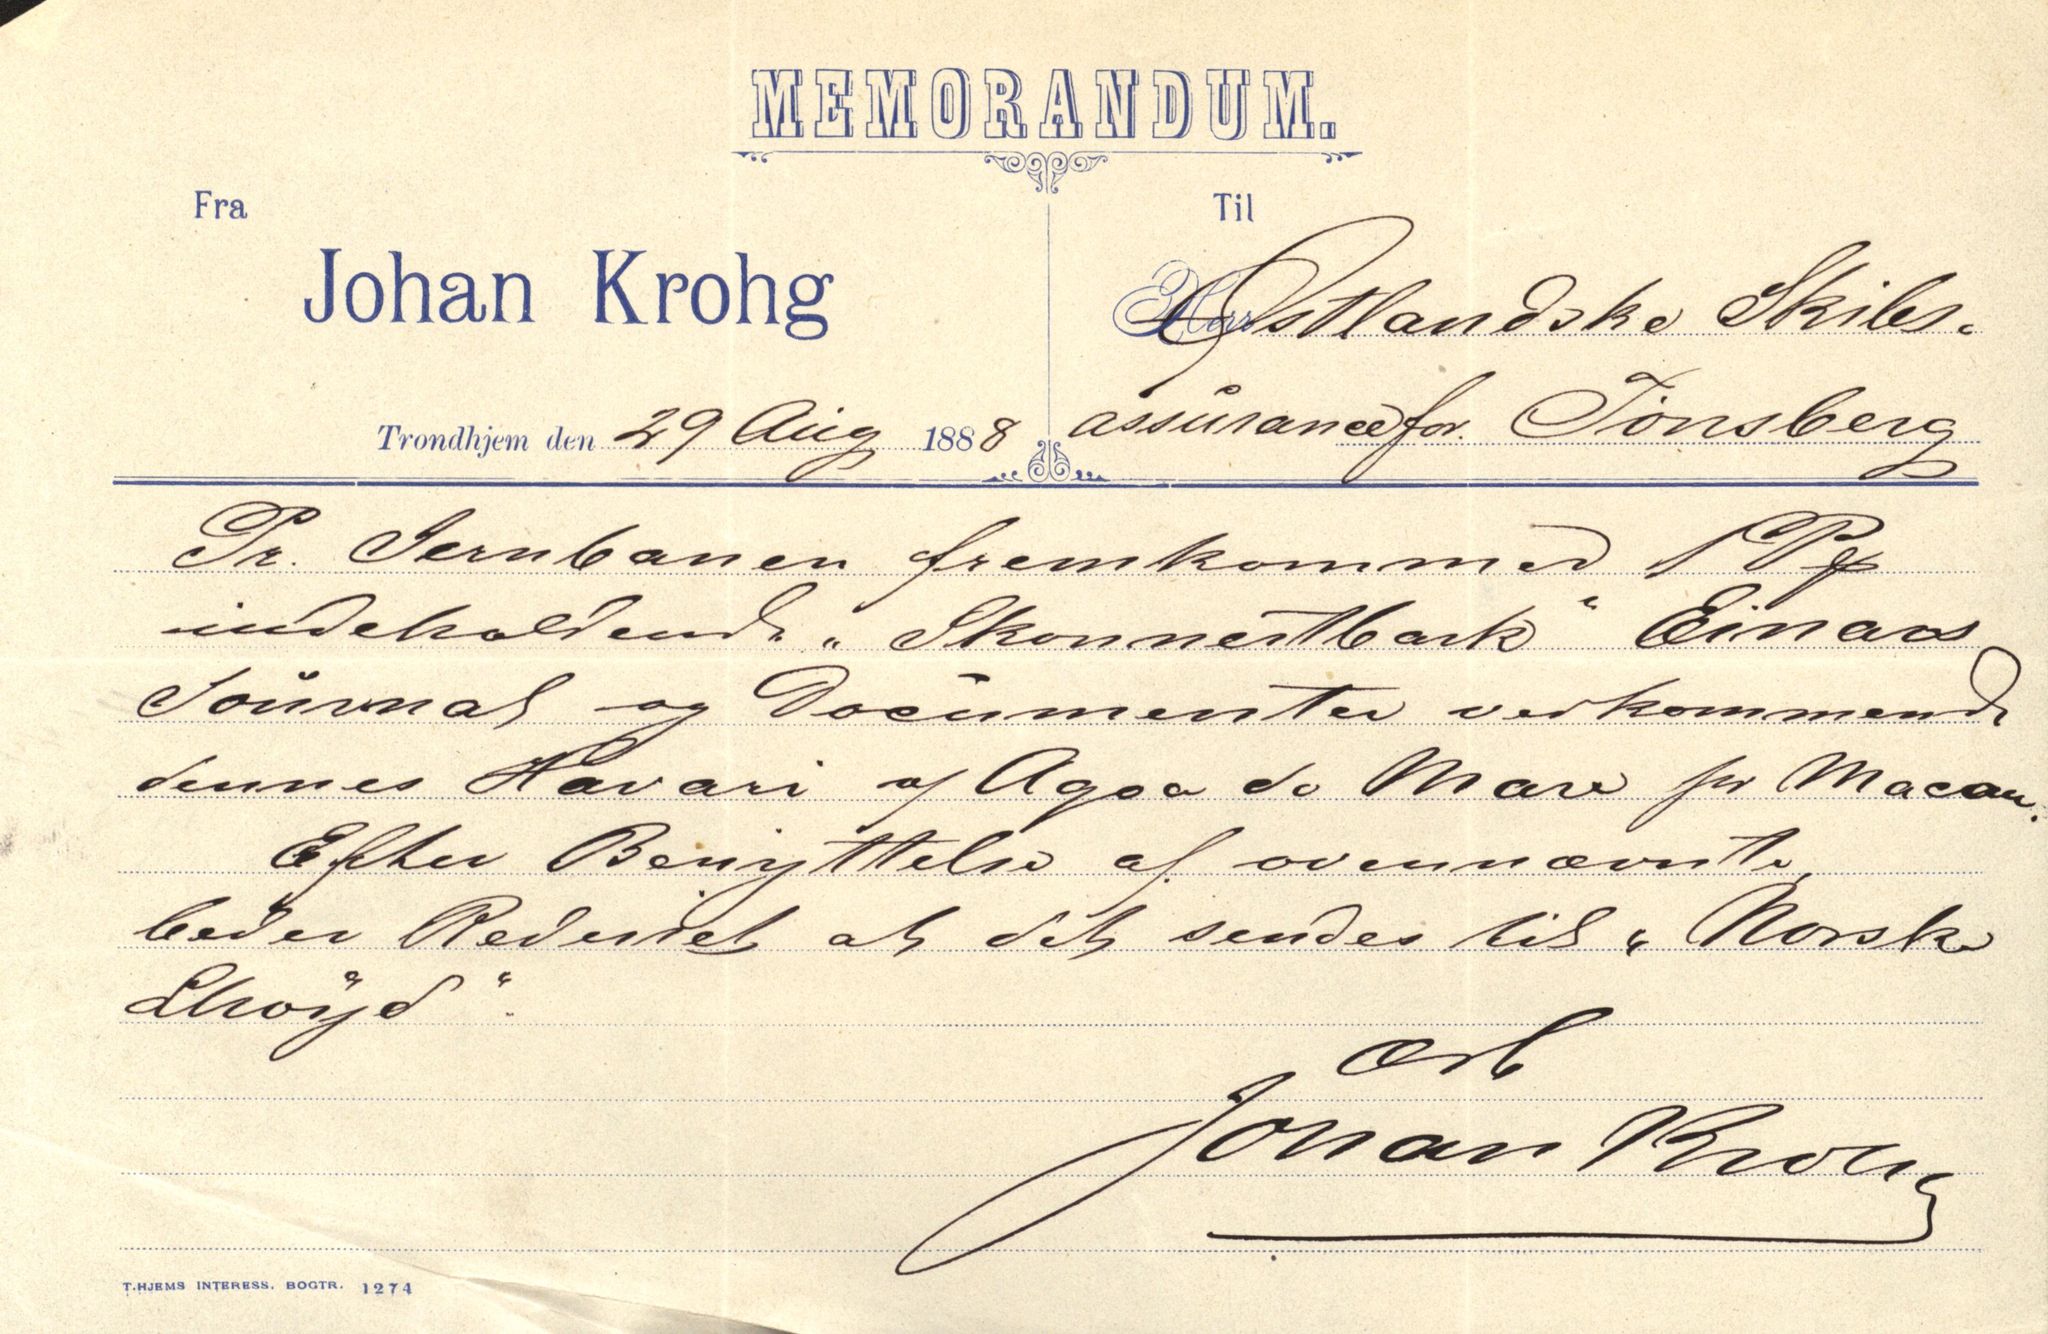 MEMORANDUM.
Fra
Johan Krohg
Trondhjem den 29 Aug 1888
Til
Herr Østlandske Skibs-
assurancefor. Tönsberg
Pr. Jernbanen fremkommed 1 PP
indeholdende "Skonnertbark" Einars
Journal og Documenter vedkommende
dennes Havari af Agoa do Mare pr Macau.
Efter Benyttelse af ovennævnte
beder Rederiet at det sendes til "Norske
Lloyd".
Ærb
Johan Krohg
T.HJEMS INTERESS. BOGTR. 1274